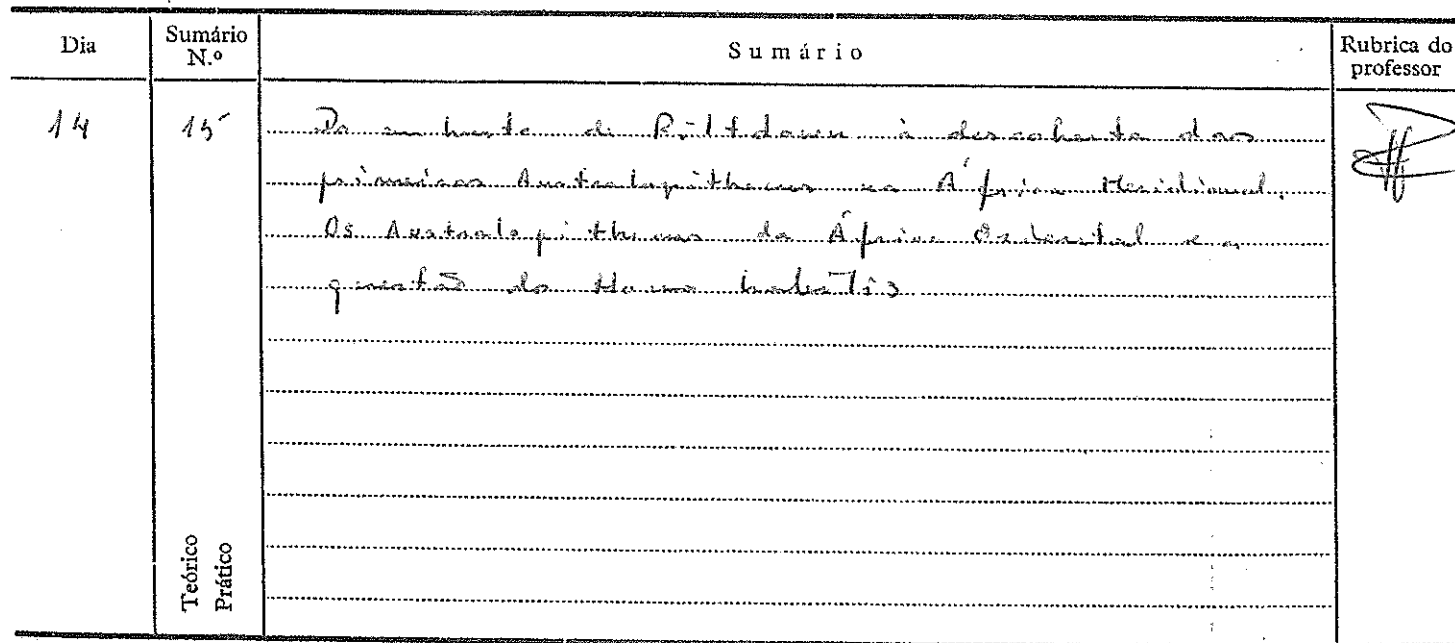 Dia
Sumário N.º
Sumário
Rubrica do professor
14
15
Do embuste de Piltdown à descoberta dos
primeiros Australopithecus na África Meridional.
Os Australopithecus da África Ocidental e a
questão do Homo habilis
Teórico
Prático